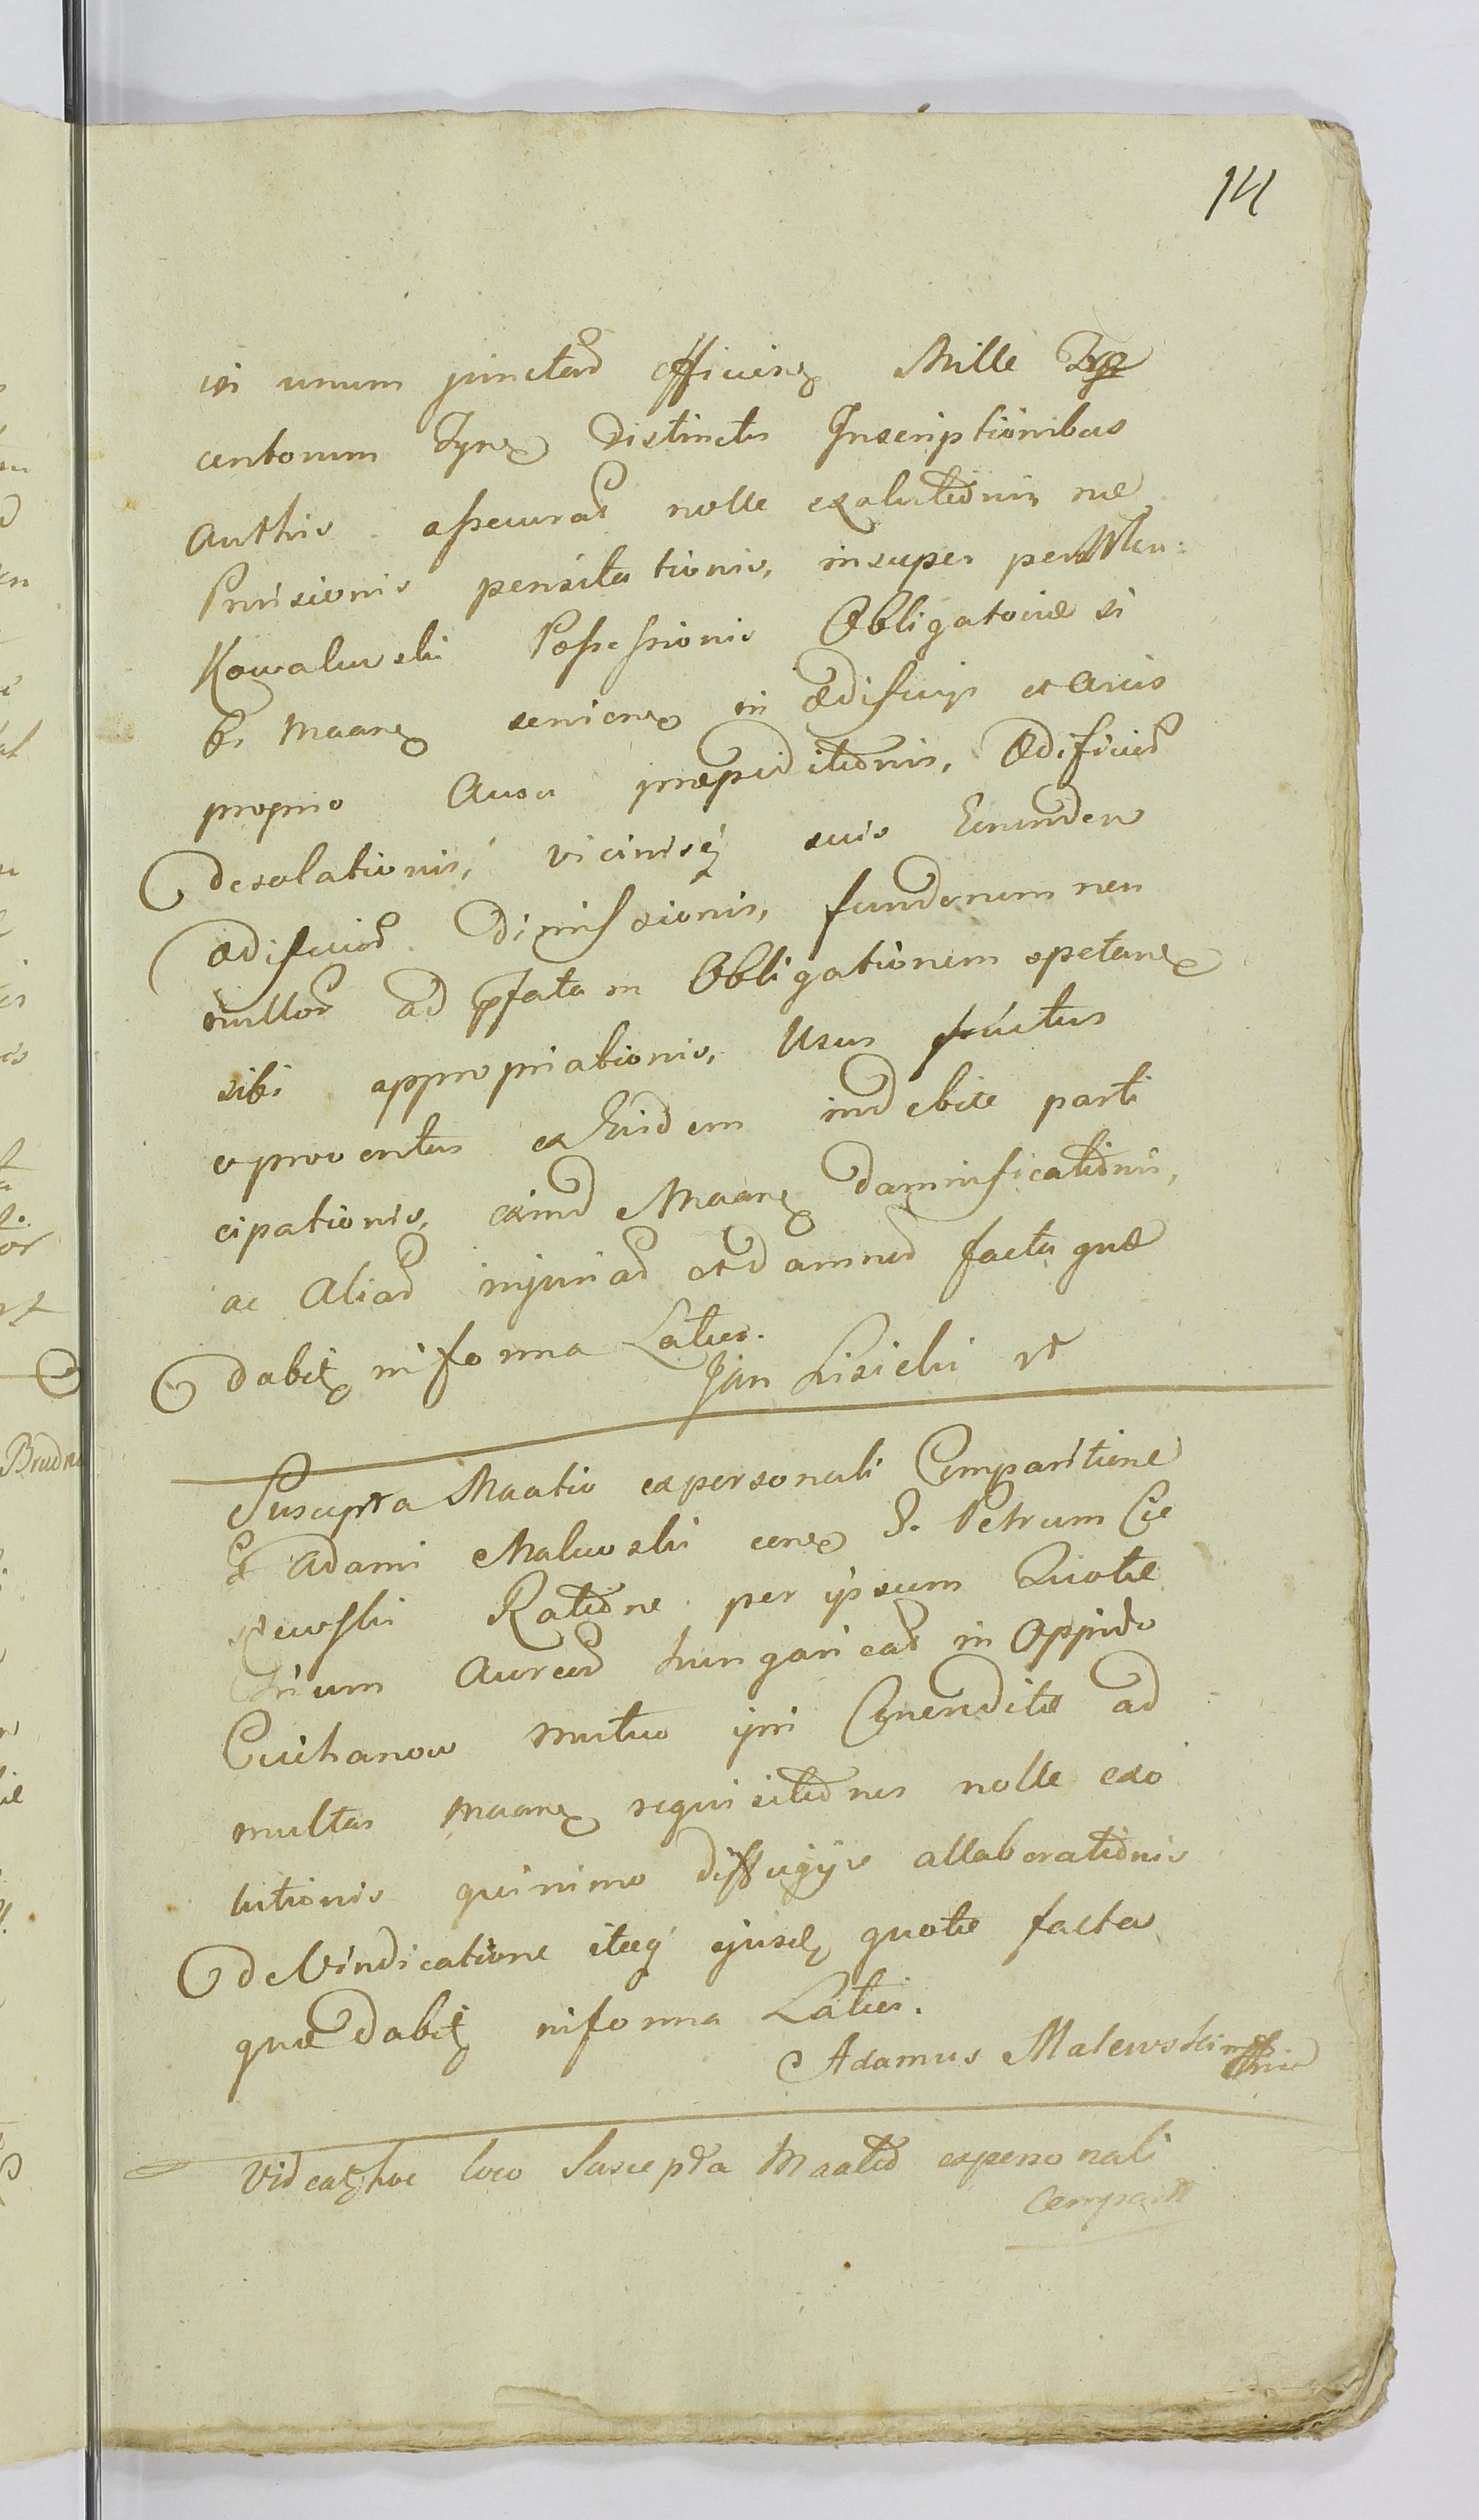 141
in unum junctad efficien Mille
centorum Tyne Distinctis Inscriptionibus
Authis assecurad nolle exalutednis me
Provisionis pensitationis, insuper
Kowalewski Possessionis Obligatoriæ si
bi Maane serviene in ædificijs et areis
proprio Ausu præpeditednis, Ædificiod
desolationis, vicinisq suis Eorundem
ædificiod Dimissionis, fundorum non
nullod ad pfatam Obligationem spetane
sibi appropriationis, Usus fructus
et proventus ex Eisdem indebite parti
cipationis, exind Maane damnificatednis,
ac Aliad injuriad et damnod facta quæ
dabit in forma Latius.
Jan Lisicki
Suscepta Maatio ex personali Comparitione
G Adami Malewski cone G. Petrum Cie
rzewski Ratedne per ipsum Quotæ
trium Aureod hungaricad in Oppido
Ciechanow mutuo ipsi Concreditæ ad
multas Maane requisitednes nolle exo
lutionis quinimo diffugijs allaboratednis
de Vindicatione itaq ejusd quotæ facta
quæ dabit in forma Latius.
Adamus Malewski
Videat hoc loco Suscepta Maatio ex personali
Comparit